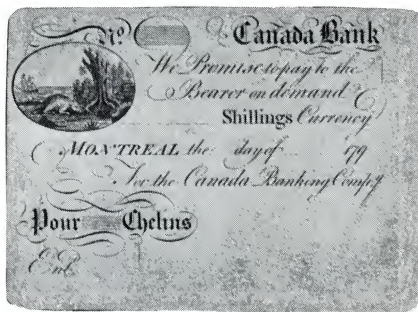 No. Canada Bank
We Promise to pay to the
Bearer on demand
Shillings Currency
MONTREAL the day of 179
For the Canada Banking Compy.
Pour Chelins
Ent.